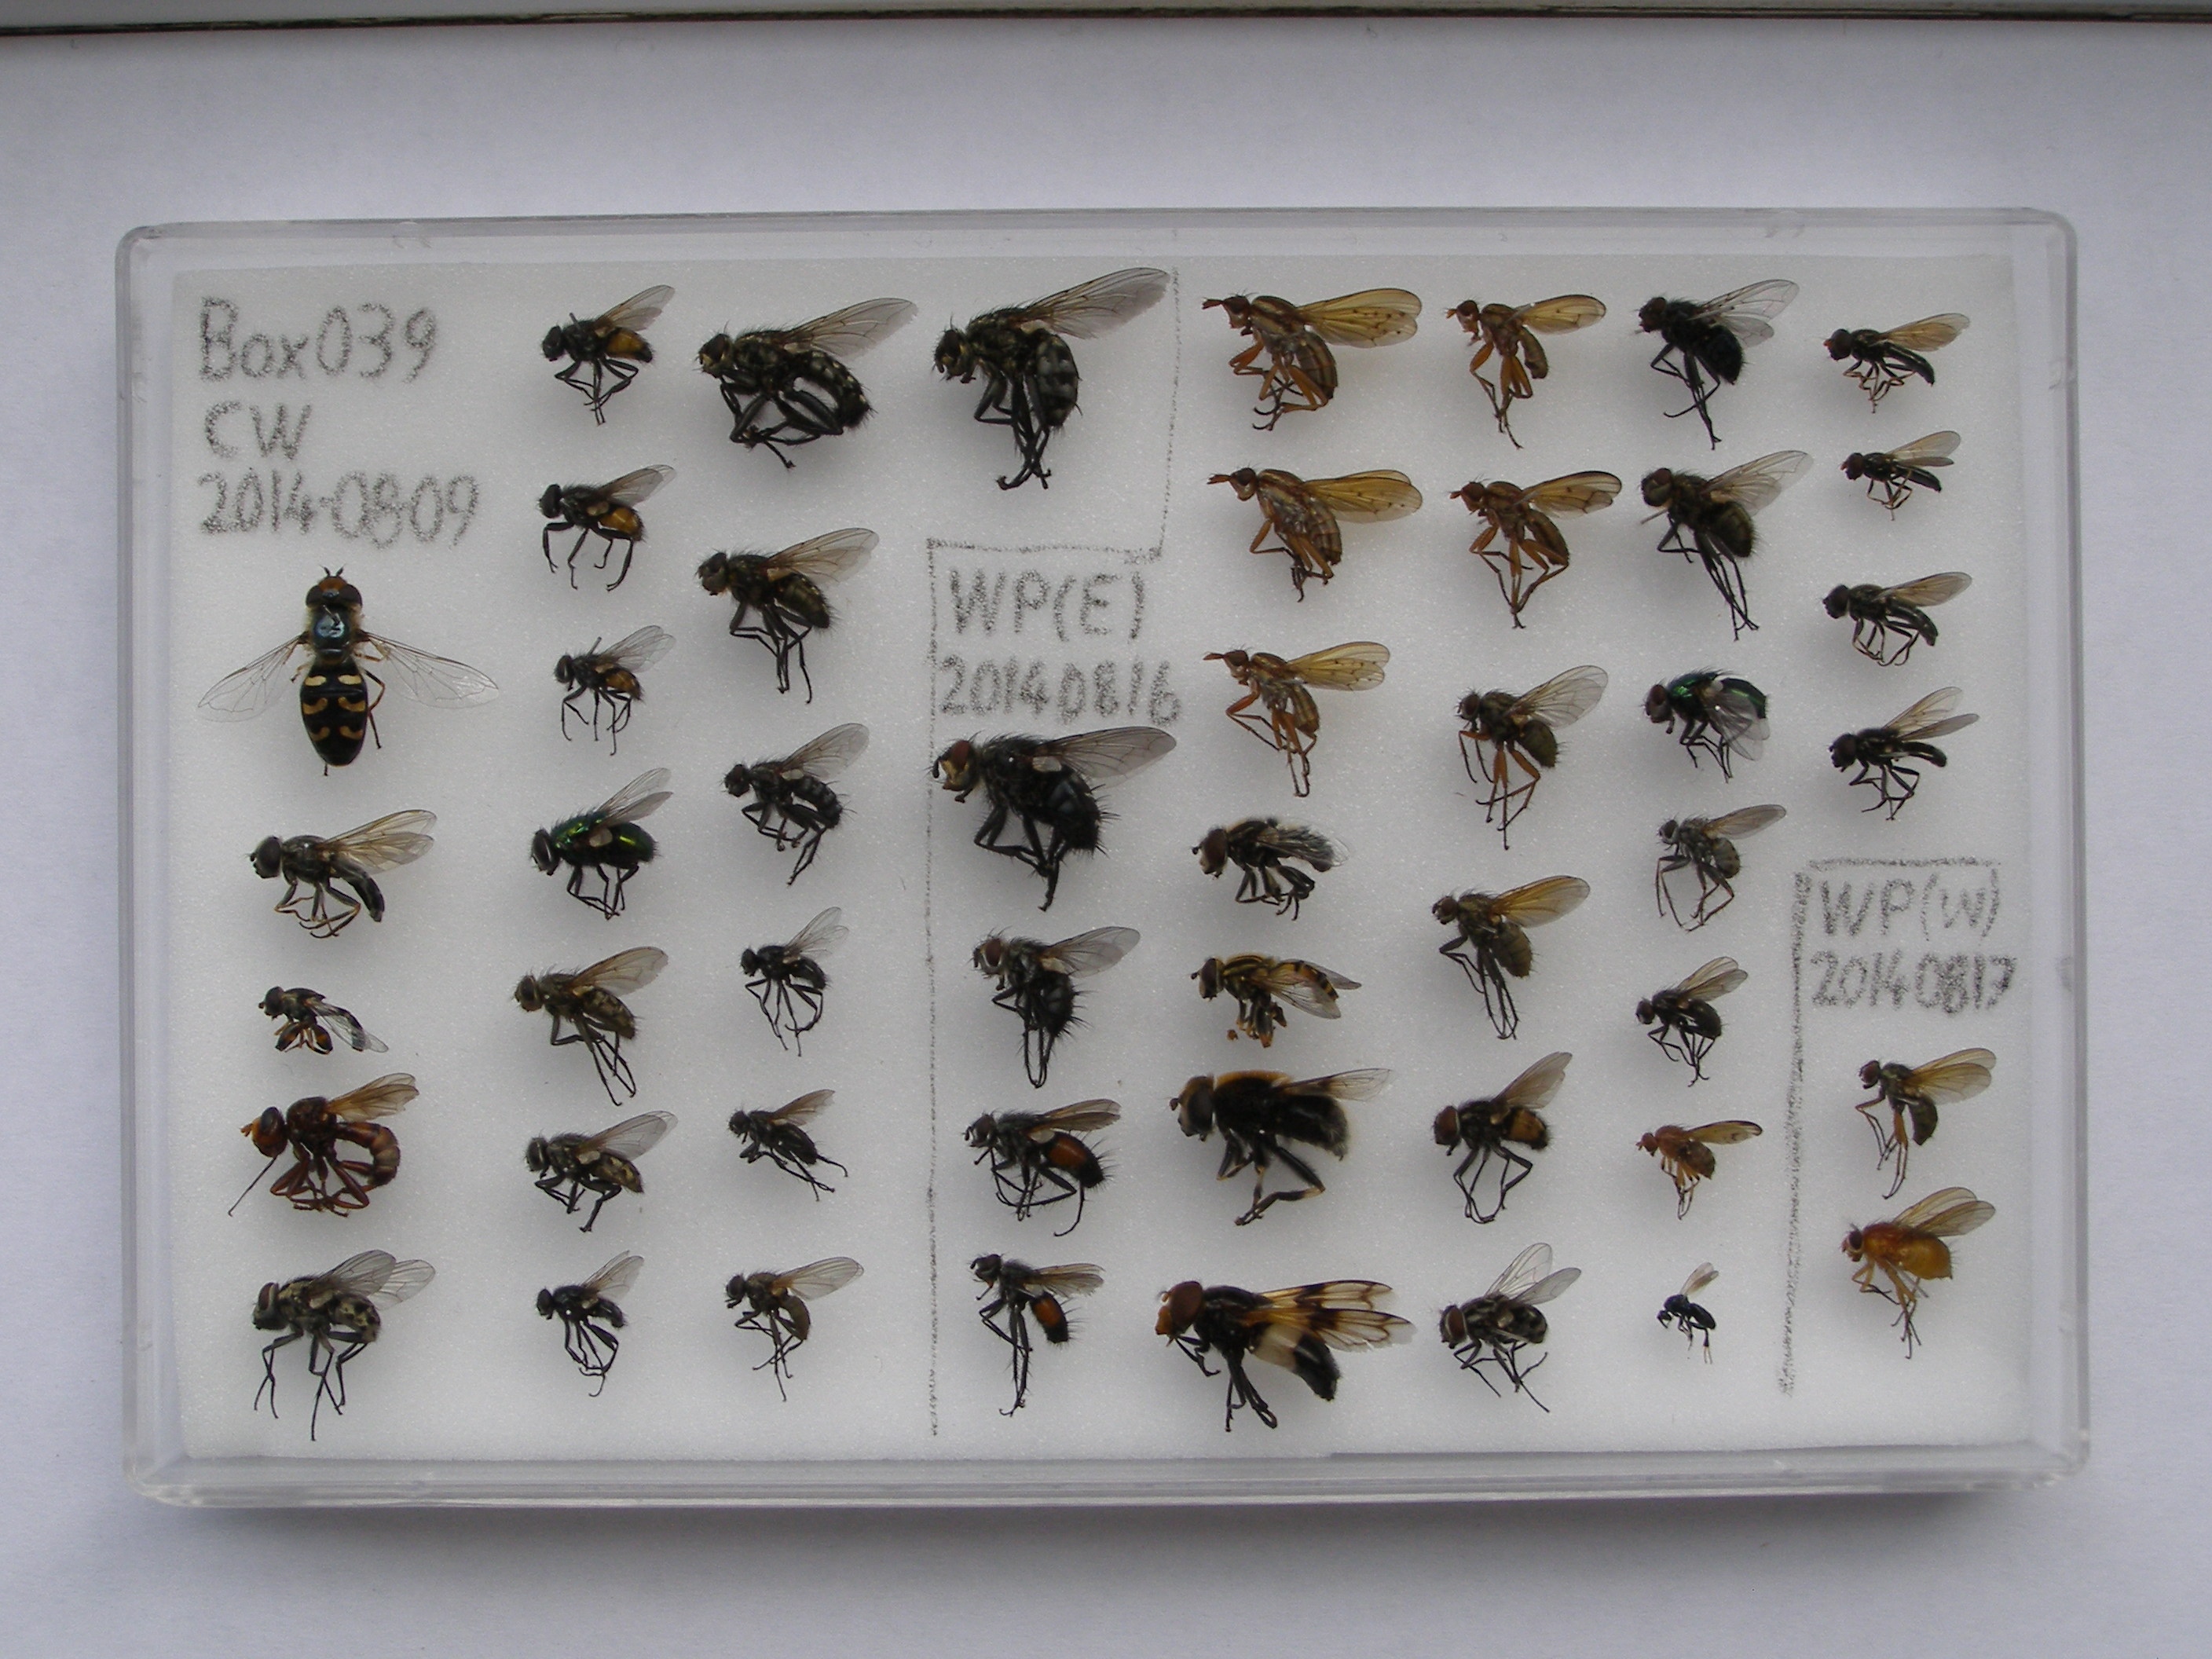 Box039
CW
20140809
WP(E)
20140816
WP(W)
20140817